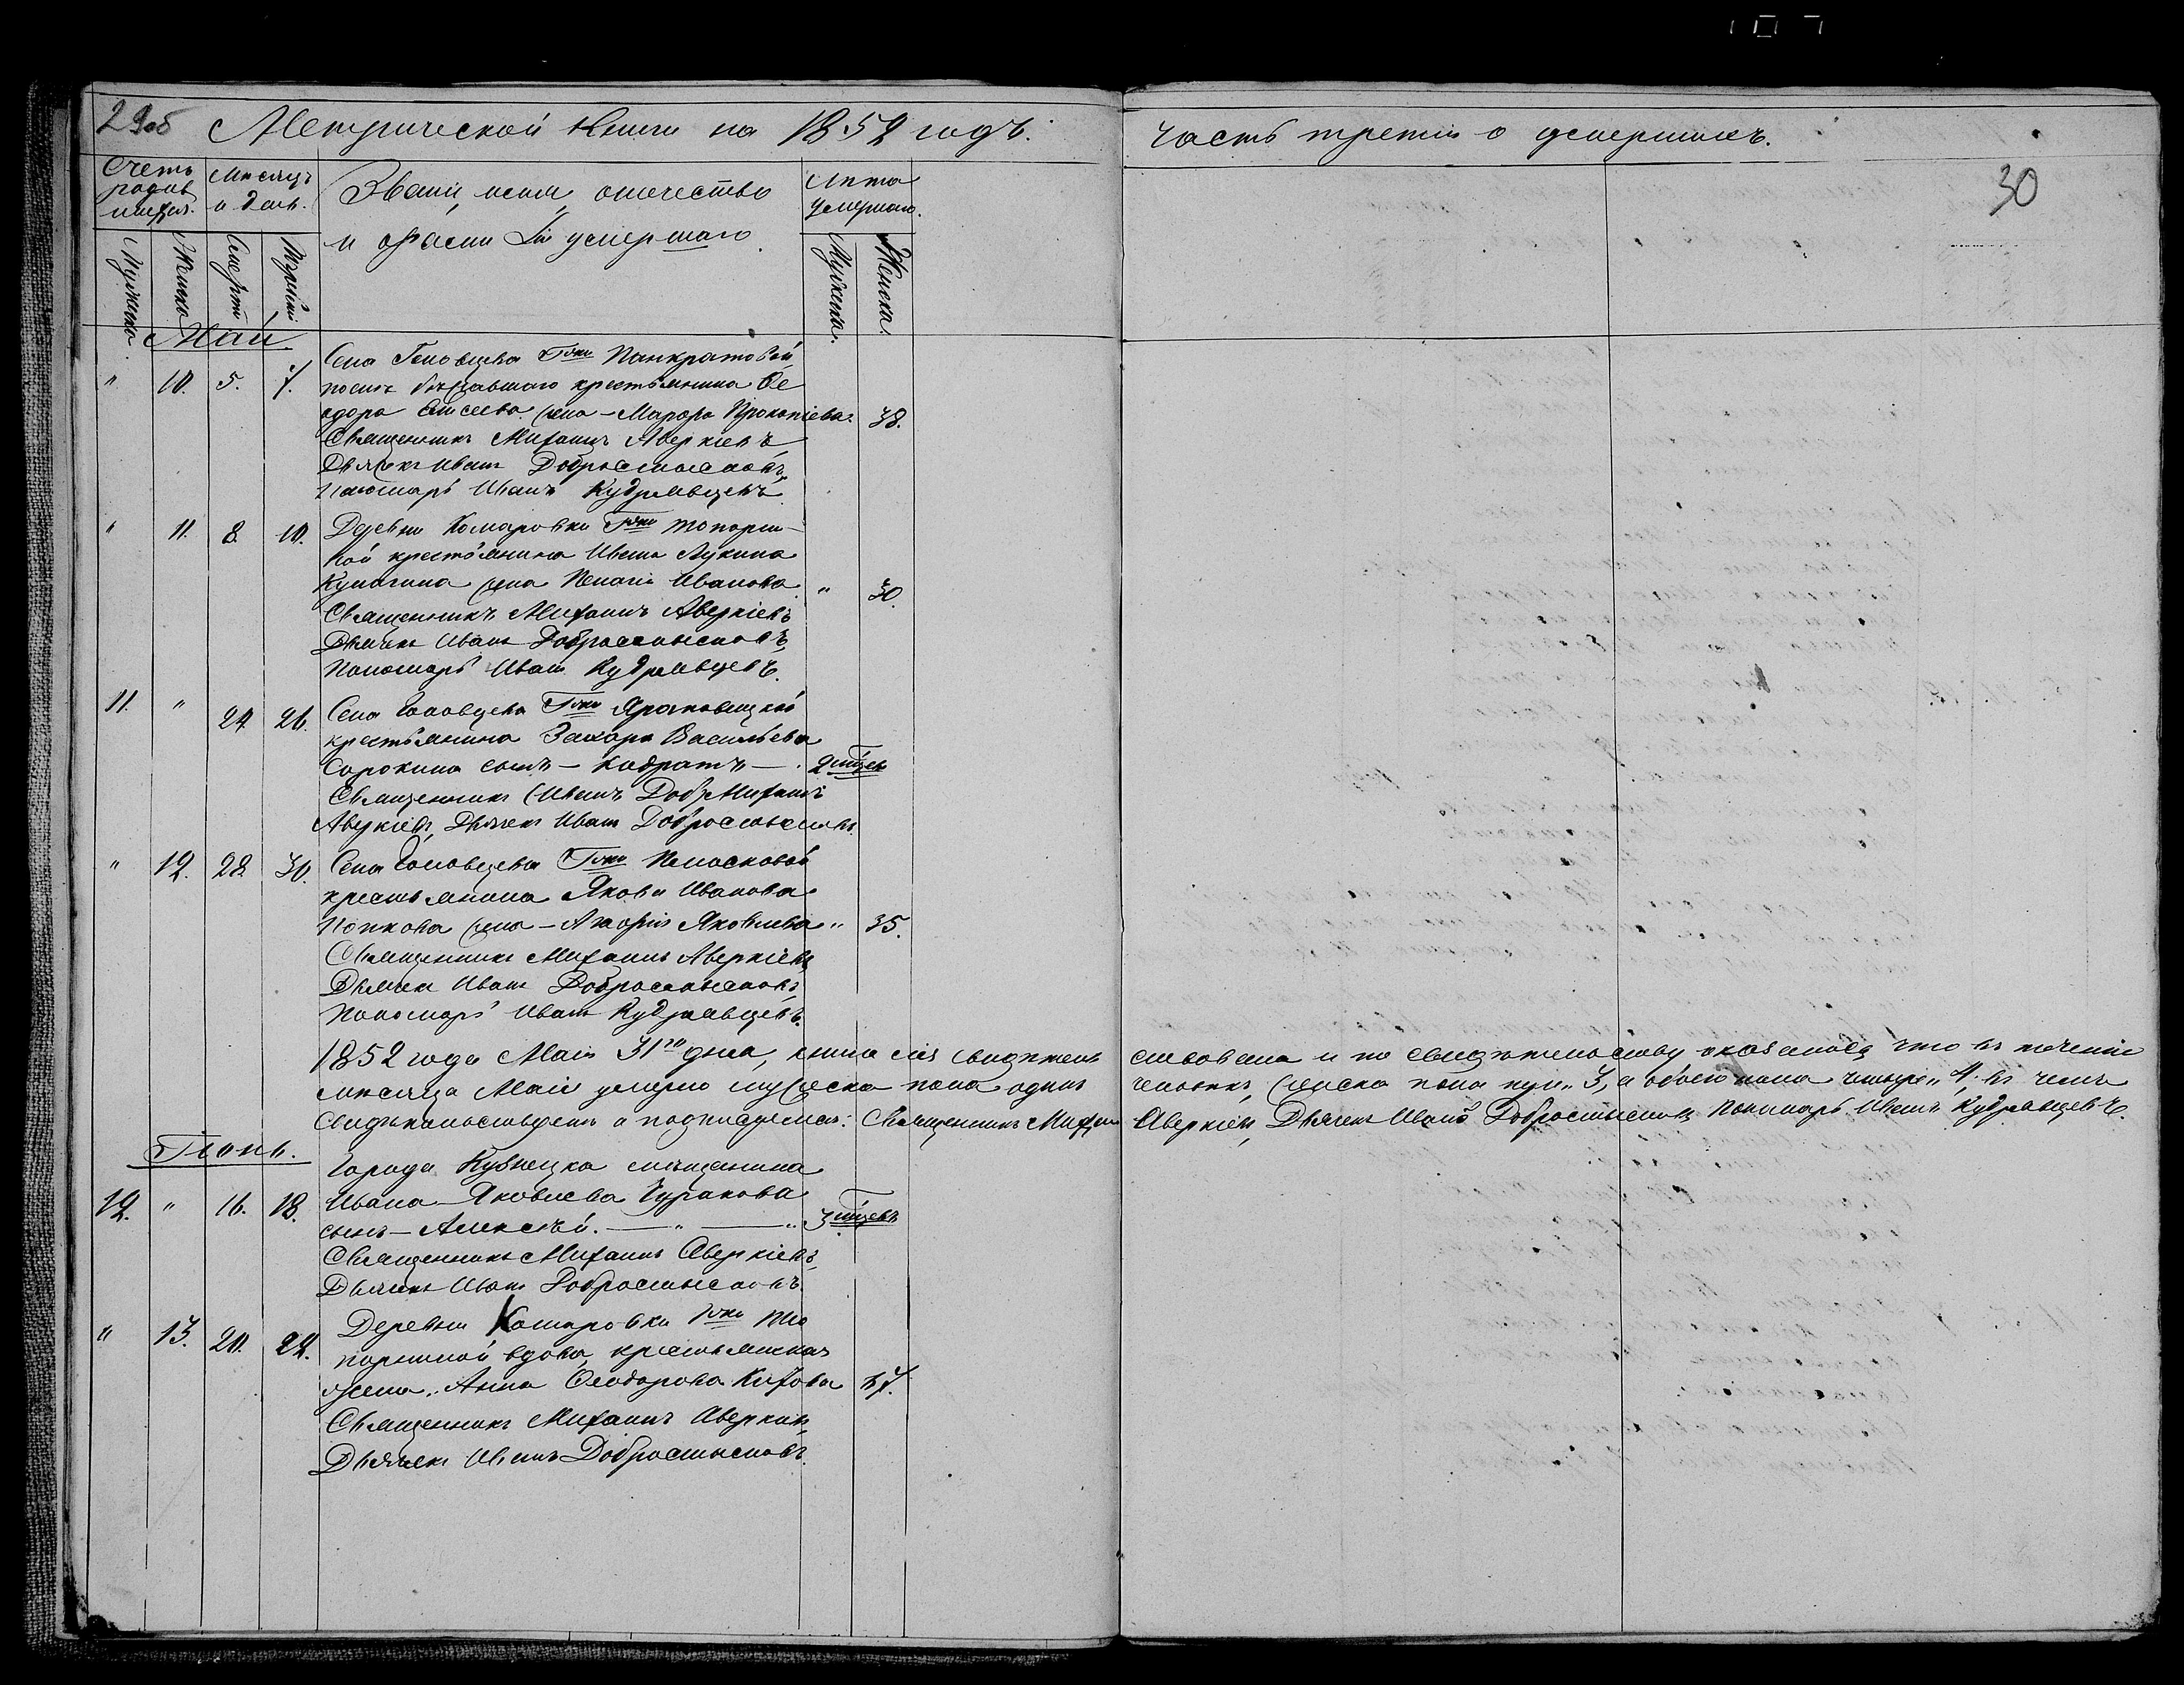 29об Метрической книги на 1852 годъ. часть третія о умершихъ.
30
Счетъ родив шихся. Мѣсяцъ и день. Званіе, имя, отечество Лѣта умершаго.
и фамилія умершаго
Мужеска. Женска Смерти Погребенія Мужеска. Женска.
Май
Села Головцева Гжи Панкратовой
" 10. 5. 7. послѣ бѣжавшаго крестьянина Ѳе
одора Елисеева жена – Марфа Прокопіева. 38.
Священникъ Михаилъ Аверкіевъ
Дьячекъ Иванъ Добросмысловъ,
Пономарь Иванъ Кудрявцевъ
" 11. 8. 10. Деревни Комаровки Гжи Топорни-
ной крестьянина Ивана Лукина
Кулагина жена Пелагія Иванова " 30.
Священникъ Михаилъ Аверкіевъ
Дьячекъ Иванъ Добросмысловъ,
Пономарь Иванъ Кудрявцевъ.
11. " 24 26. Села Головцева Гжи
крестьянина Захара Васильева
Сорокина сынъ – Кодратъ – 2 мѣсяц
Священникъ Михаилъ
Аверкіевъ, Дьячекъ Иванъ Добросмысловъ.
" 12. 28. 30. Села Головцева Гжи
крестьянина Якова Иванова
Попкова жена – Агафія Яковлева " 35.
Священникъ Михаилъ Аверкіевъ
Дьячекъ Иванъ Добросмысловъ,
Пономарь Иванъ Кудрявцевъ.
1852 года Маія 31го дня, книга сія свидѣтель ствована и по свидѣтельству оказалось что въ теченіе
мѣсяца Маія умерло мужеска пола одинъ человѣкъ, женска пола три " 3, а обоего пола четыре " 4. въ чемъ
свидѣтельствуемъ и подписуемся: Священникъ Михаилъ Аверкіевъ, Дьячекъ Иванъ Добросмысловъ Пономарь Иванъ Кудрявцевъ.
Іюнь.
Города Кузнецка мѣщанина
12. " 16. 18. Ивана Яковлева
сынъ – Алексѣй. – " – " 3 мѣсяц
Священникъ Михаилъ Аверкіевъ,
Дьячекъ Иванъ Добросмысловъ.
" 13. 20. 22. Деревни Комаровки Гжи То
порниной вдова, крестьянская
жена " Анна Ѳеодорова 67.
Священникъ Михаилъ Аверкіевъ,
Дьячекъ Иванъ Добросмысловъ.